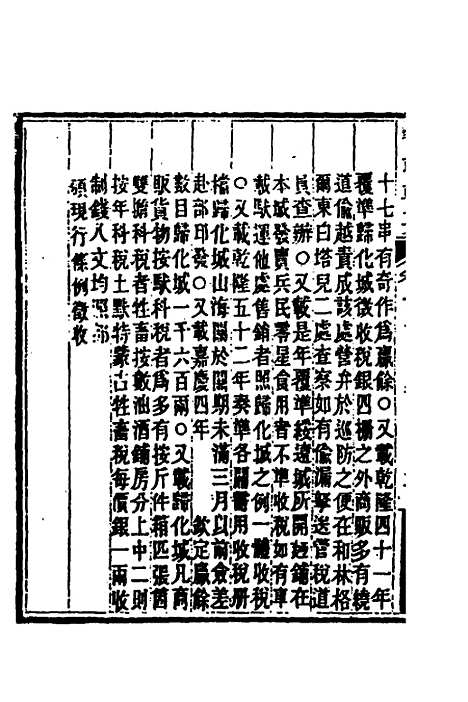 十七串有奇作爲贏餘○又載乾隆四十一年
覆準歸化城徵收稅銀四柵之外商販多有繞
道偷越責成該處營弁於巡防之便在和林格
爾東白塔兒二處查察如有偷漏拏送管稅道
員查辦○又載是年覆準綏遠城所開鋪在
本城發賣兵民零星食用者不準收稅如有車
載馱運他處售銷者照歸化城之例一體收稅
○又載乾隆五十二年奏準各關需用收稅册
檔歸化城山海關於關期未滿三月以前僉差
赴部印發○又載嘉慶四年 欽定贏餘
數目歸化城一千六百兩○又載歸化城凡商
販貨物按馱科稅者爲多有按斤件箱匹張圈
雙擔科稅者牲畜按數油酒鋪房分上中二則
按年科稅土默特蒙古牲畜稅每價銀一兩收
制錢八文均照部
頒現行條例徵收